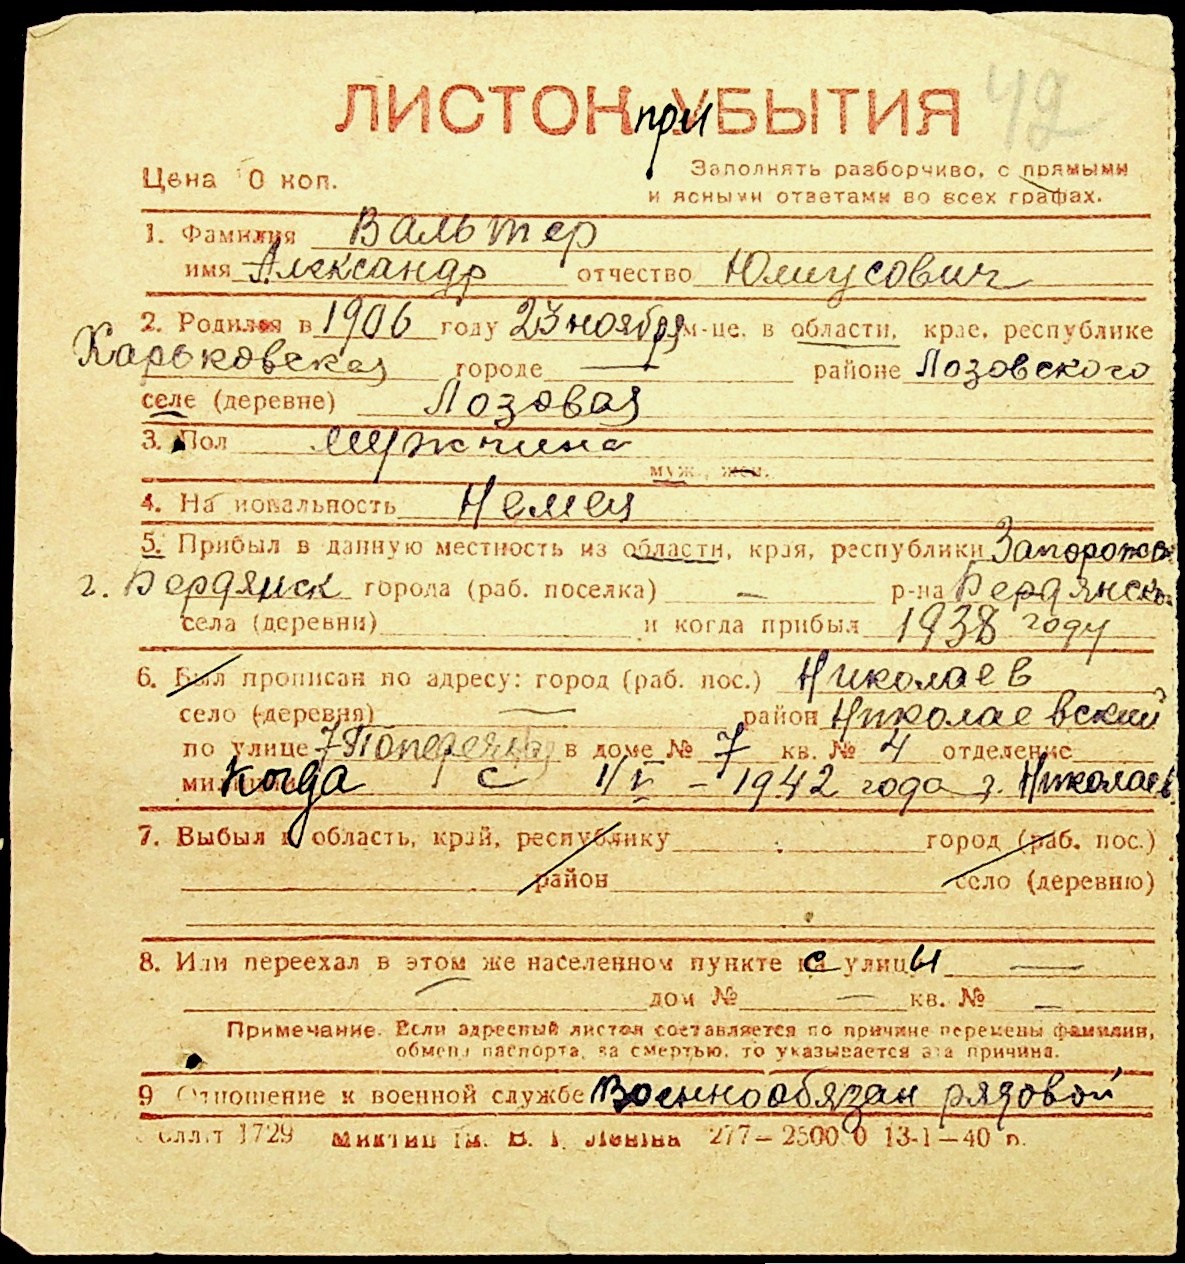 ЛИСТОК при УБЫТИЯ 42
Цена 10 коп. Заполнять разборчиво, с прямыми
и ясными ответами во всех графах.
1. Фамилия Вальтер
имя Александр отчество Юлиусович
2. Родился в 1906 году 23 ноября м-це, в области, крае, республике
Харьковская городе — районе Лозовского
селе (деревне) Лозовая
3. Пол мужчина
муж., жен.
4. Национальность Немец
5. Прибыл в данную местность из области, края, республики Запорожс
г. Бердянск города (раб. поселка) — р-на Бердянск
села (деревни) и когда прибыл 1938 году
6. Был прописан по адресу: город (раб. пос.) Николаев
село (деревня) — район Николаевский
по улице 7 Поперечная в доме № 7 кв. № 4 отделение
милиции Когда с 1/V – 1942 года г. Николаев
7. Выбыл в область, край, республику город (раб. пос.)
район село (деревню)
8. Или переехал в этом же населенном пункте с улицы —
дом № — кв. № —
Примечание. Если адресный листок составляется по причине перемены фамилии,
обмена паспорта, за смертью, то указывается эта причина.
9 Отношение к военной службе Военнообязан рядовой
1729 ім. В. І. Леніна 277—2500.0 13-1—40 р.